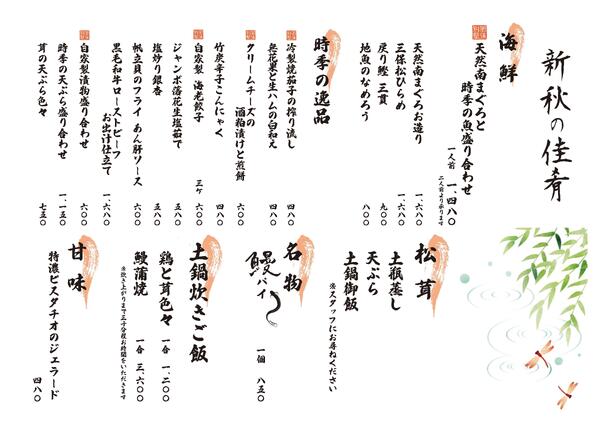 新秋の佳肴
海鮮
天然南まぐろと
時季の魚盛り合わせ
一人前 一、四八〇
二人前より承ります
天然南まぐろお造り 一、六八〇
三保松ひらめ 一、六八〇
戻り鰹 三貫 九〇〇
地魚のなめろう 八〇〇
時季の逸品
冷製焼茄子の搾り流し 四八〇
無花果と生ハムの白和え 四八〇
クリームチーズの
酒粕漬けと煎餅 六〇〇
竹炭辛子こんにゃく 四八〇
自家製 海老餃子 三ケ 六〇〇
ジャンボ落花生塩茹で 五八〇
塩炒り銀杏 五八〇
帆立貝のフライ あん肝ソース 六〇〇
黒毛和牛ローストビーフ
お出汁仕立て 一、六八〇
自家製漬物盛り合わせ 六〇〇
時季の天ぷら盛り合わせ 一、一五〇
茸の天ぷら色々 七五〇
松茸
土瓶蒸し
天ぷら
土鍋御飯
※スタッフにお尋ねください
名物
鰻パイ 一個 八五〇
土鍋炊きご飯
鶏と茸色々 一合 一、二〇〇
鰻蒲焼 一合 三、六〇〇
※炊き上がりまで五十分程お時間をいただきます
甘味
特濃ピスタチオのジェラード 四八〇